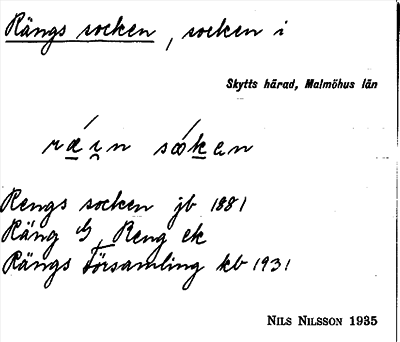 Rängs socken, socken i
Skytts härad, Malmöhus län
ráı̯n sǿken
Rengs socken jb 1881
Räng G, Reng ek
Rängs församling kb 1931
NILS NILSSON 1935